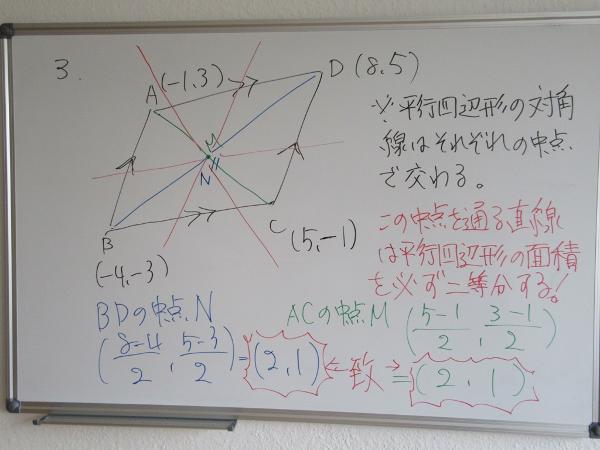 3.
A(-1,3)
D(8,5)
B
(-4,-3)
C
(5,-1)
M
N
※平行四辺形の対角
線はそれぞれの中点
で交わる。
この中点を通る直線
は平行四辺形の面積
を必ず二等分する!
BDの中点N
(8-4/2, 5-3/2)=(2,1)
←一致→
ACの中点M (5-1/2, 3-1/2)
=(2,1)